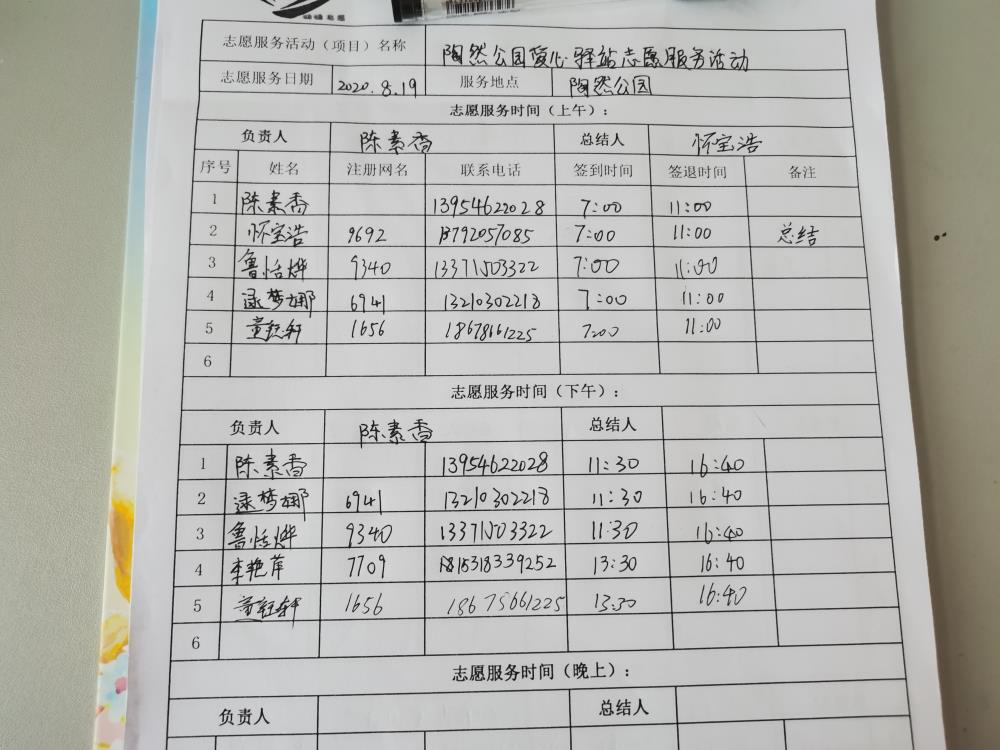 志愿服务活动（项目）名称 陶然公园爱心驿站志愿服务活动
志愿服务日期 2020.8.19 服务地点 陶然公园
志愿服务时间（上午）：
负责人 陈素香 总结人 怀宝浩
序号 姓名 注册网名 联系电话 签到时间 签退时间 备注
1 陈素香 13954622028 7:00 11:00
2 怀宝浩 9692 13792057085 7:00 11:00 总结
3 鲁恬烨 9340 13371503322 7:00 11:00
4 逯梦娜 6941 13210302218 7:00 11:00
5 董钰轩 1656 18678661225 7:00 11:00
6
志愿服务时间（下午）：
负责人 陈素香 总结人
1 陈素香 13954622028 11:30 16:40
2 逯梦娜 6941 13210302218 11:30 16:40
3 鲁恬烨 9340 13371503322 11:30 16:40
4 李艳萍 7709 1815318339252 13:30 16:40
5 董钰轩 1656 18678661225 13:30 16:40
6
志愿服务时间（晚上）：
负责人 总结人